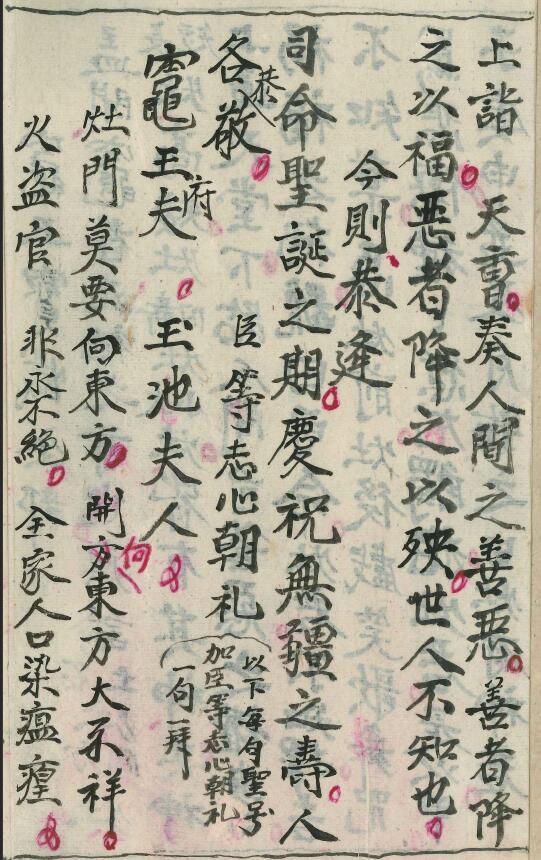 上詣 天曹奏人間之善惡善者降
之以福惡者降之以殃世人不知也
今則恭逢
司命聖誕之期慶祝無疆之壽人
各恭敬 臣等志心朝礼 以下每句聖号
加臣等志心朝礼
一句一拜
竈王府夫 玉池夫人
灶門莫要向東方 開向東方大不祥
火盗官非永不絕 全家人口染瘟瘟